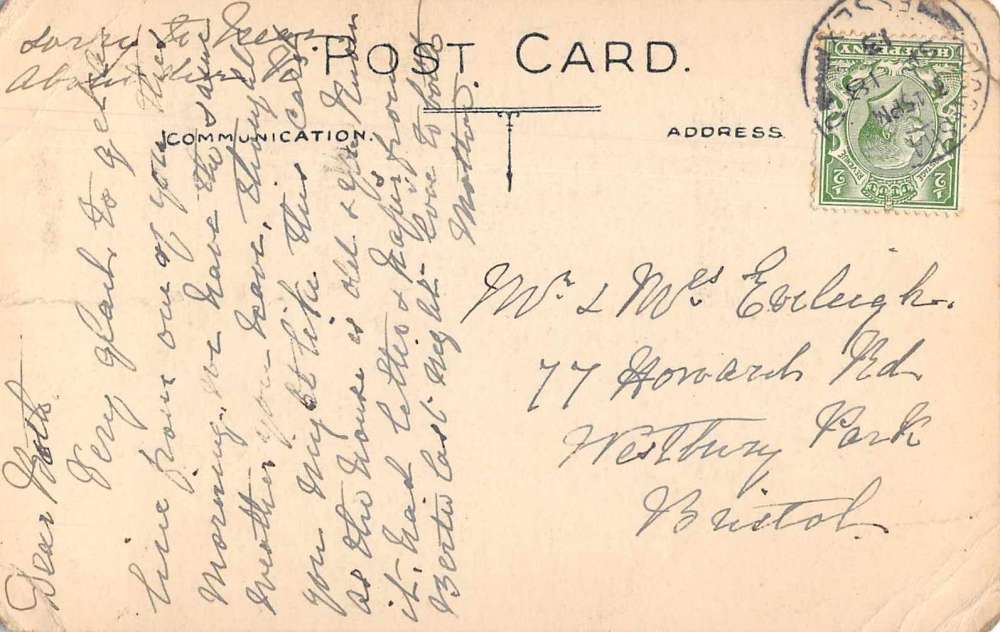 POST CARD.
COMMUNICATION.
ADDRESS.
HALFPENNY
½ REVENUE ½
Dear Both.
Very glad to get
line from one of you this
morning, we have the same
weather you have, thought
you my like this card
as the house is old &
it. had letter & paper from
Bertie last night. Love to both
Mother.
sorry to hear
about
Mr & Mrs Eveleigh.
77 Howard Rd
Westbury Park
Bristol.